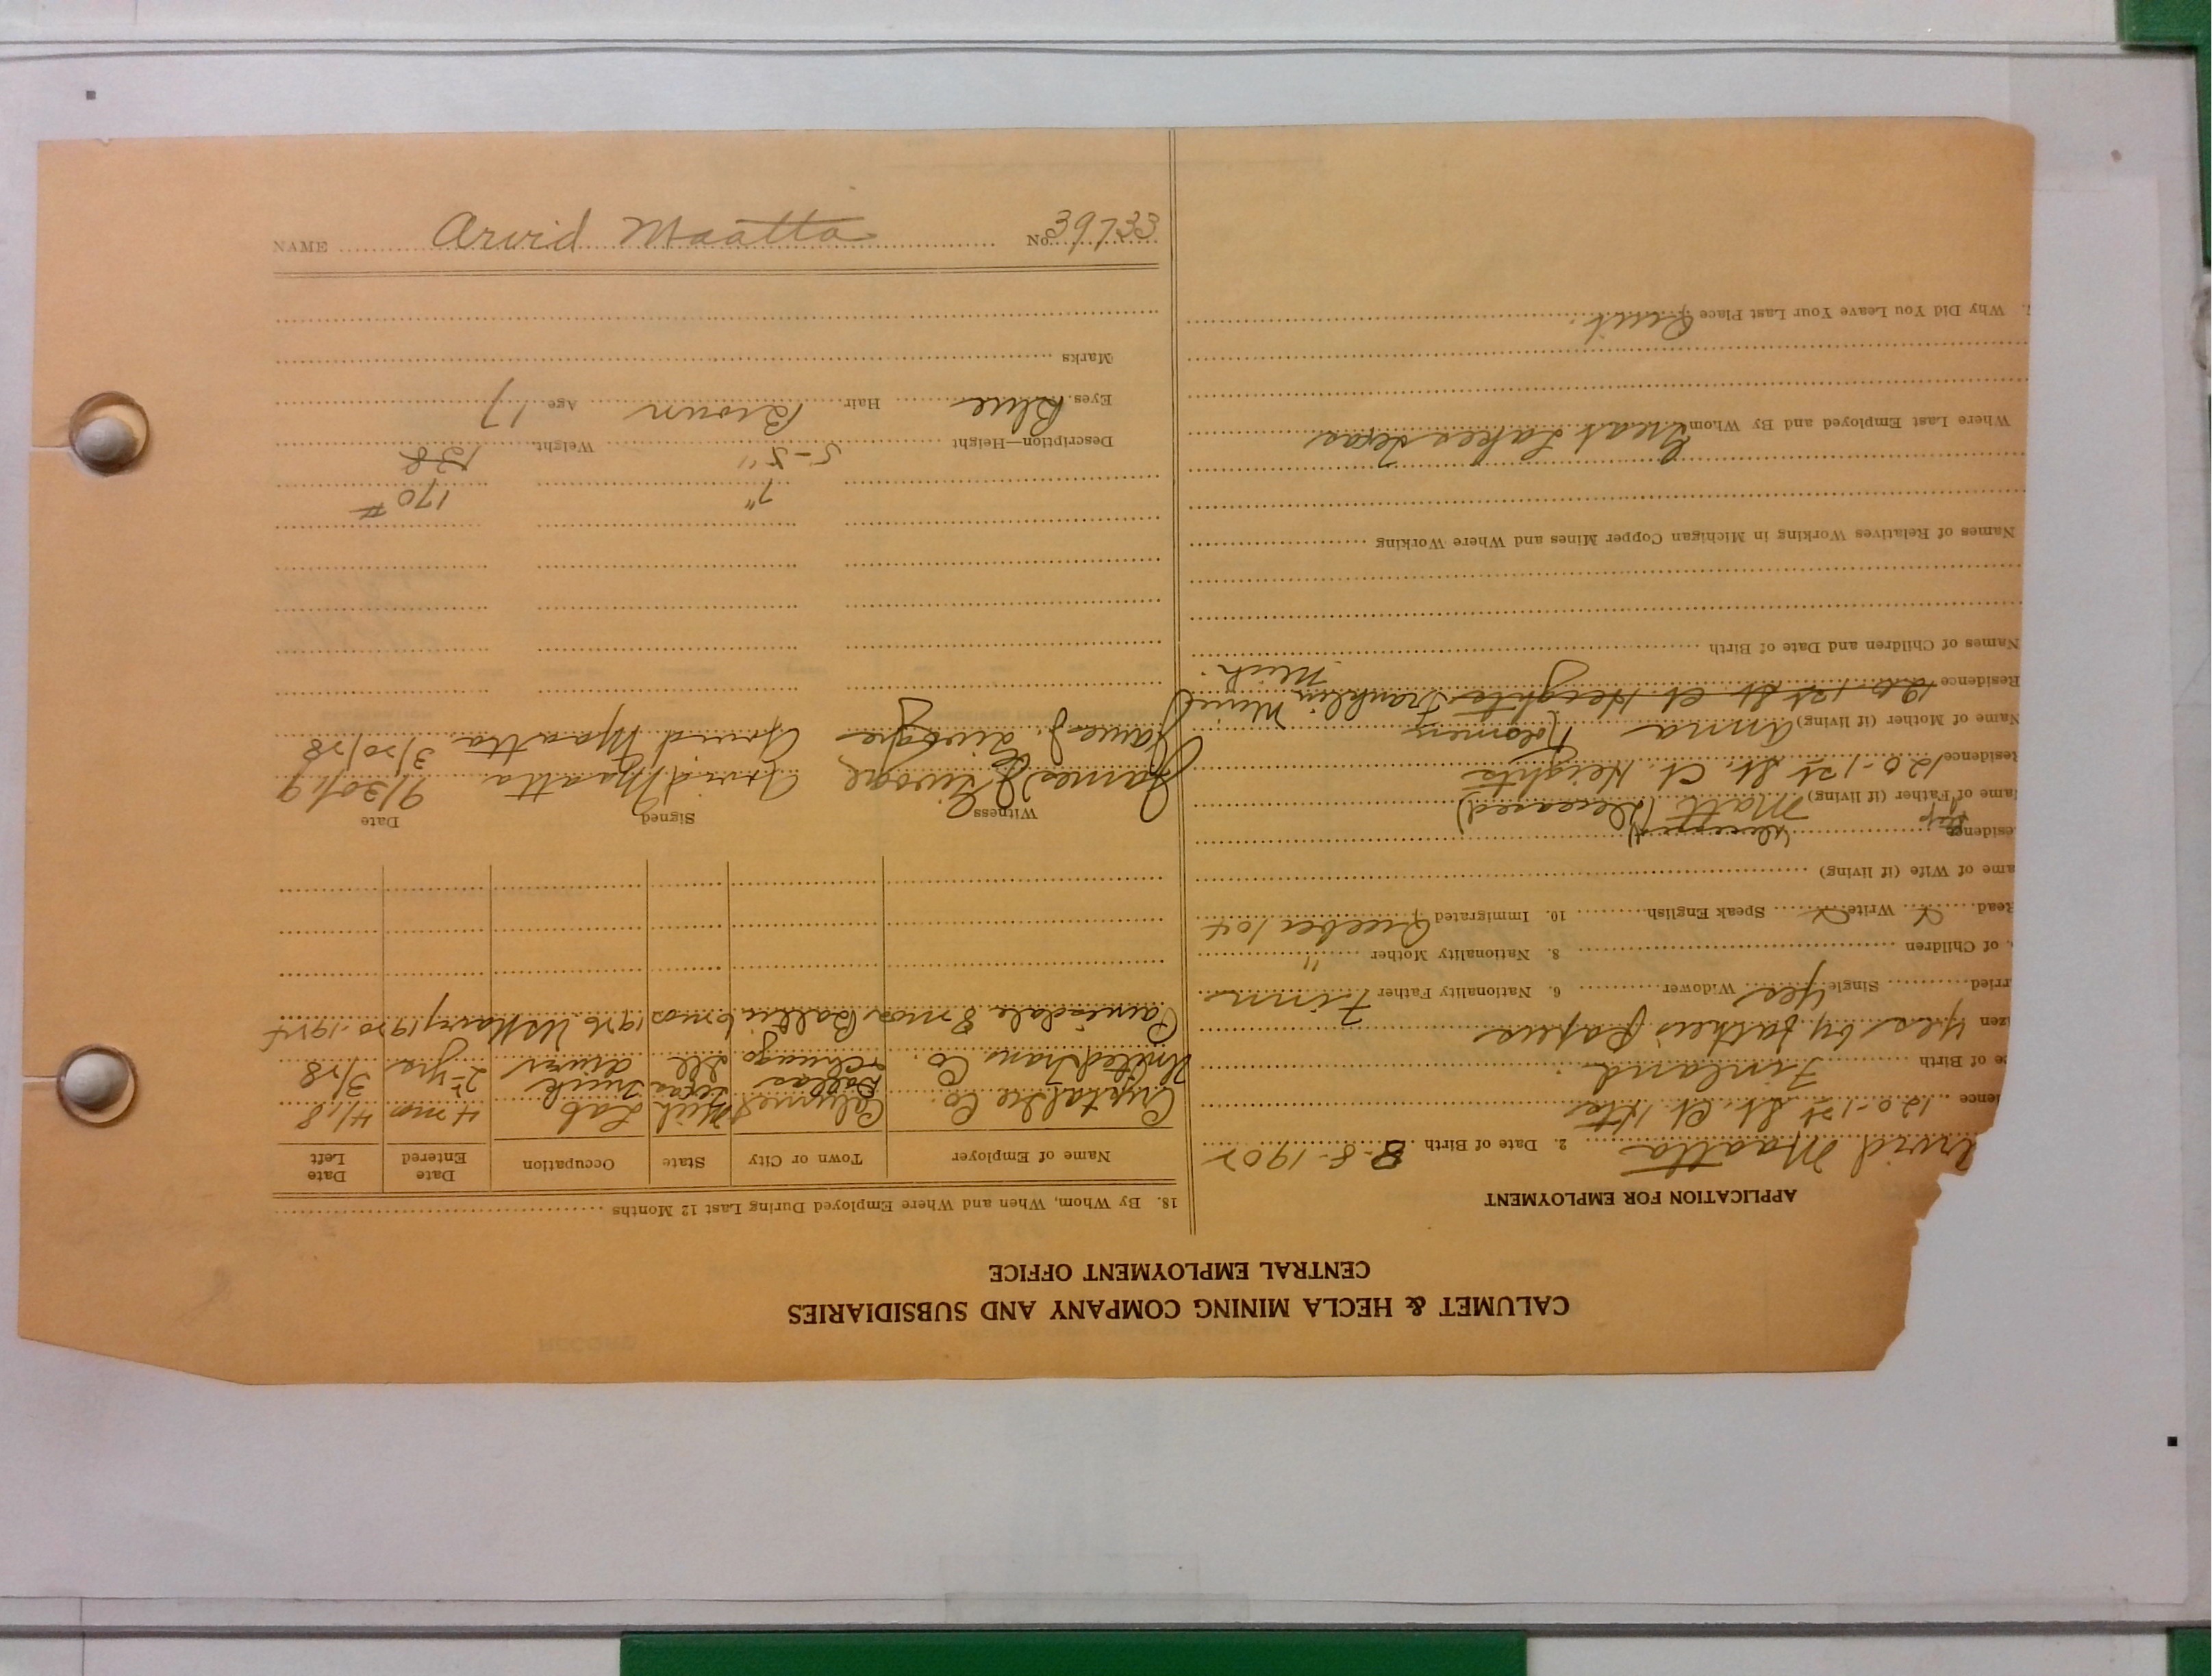 CALUMET & HECLA MINING COMPANY AND SUBSIDIARIES
CENTRAL EMPLOYMENT OFFICE
APPLICATION FOR EMPLOYMENT
Arvid Maatta 2. Date of Birth 8-8-1902
dence 120-1st St. Cl. Hts
ce of Birth Finland
zen Yes by fathers Papers
rried Single Yes Widower 6. Nationality Father Finn
. of Children 8. Nationality Mother "
Read Write Speak English 10. Immigrated Quebec 104
ame of Wife (if living)
esidence
Name of Father (if living) Matt (deceased)
Residence 120-1st St. Cl. Heights
Name of Mother (if living) Anna
Residence 120-1st St Cl. Heights Franklin Mine
Mich.
Names of Children and Date of Birth
Names of Relatives Working in Michigan Copper Mines and Where Working
Where Last Employed and By Whom Great Lakes
. Why Did You Leave Your Last Place Quit.
18. By Whom, When and Where Employed During Last 12 Months
Name of Employer Town or City State Occupation Date Entered Date Left
Crystal Ice Co. Calumet Mich Lab 4 mo 4/18
United Trans Co. Dallas Texas Truck driver 2 yrs 3/28
Chicago Ill
8 mos 6 mos 1926 US Navy 1920-1924
Witness Signed Date
James Arvid Maatta 9/30/19
James Arvid Maatta 3/20/28
7" 170#
Description—Height 5-5" Weight 138
Eyes Blue Hair Brown Age 17
Marks
NAME Arvid Maatta No. 39733